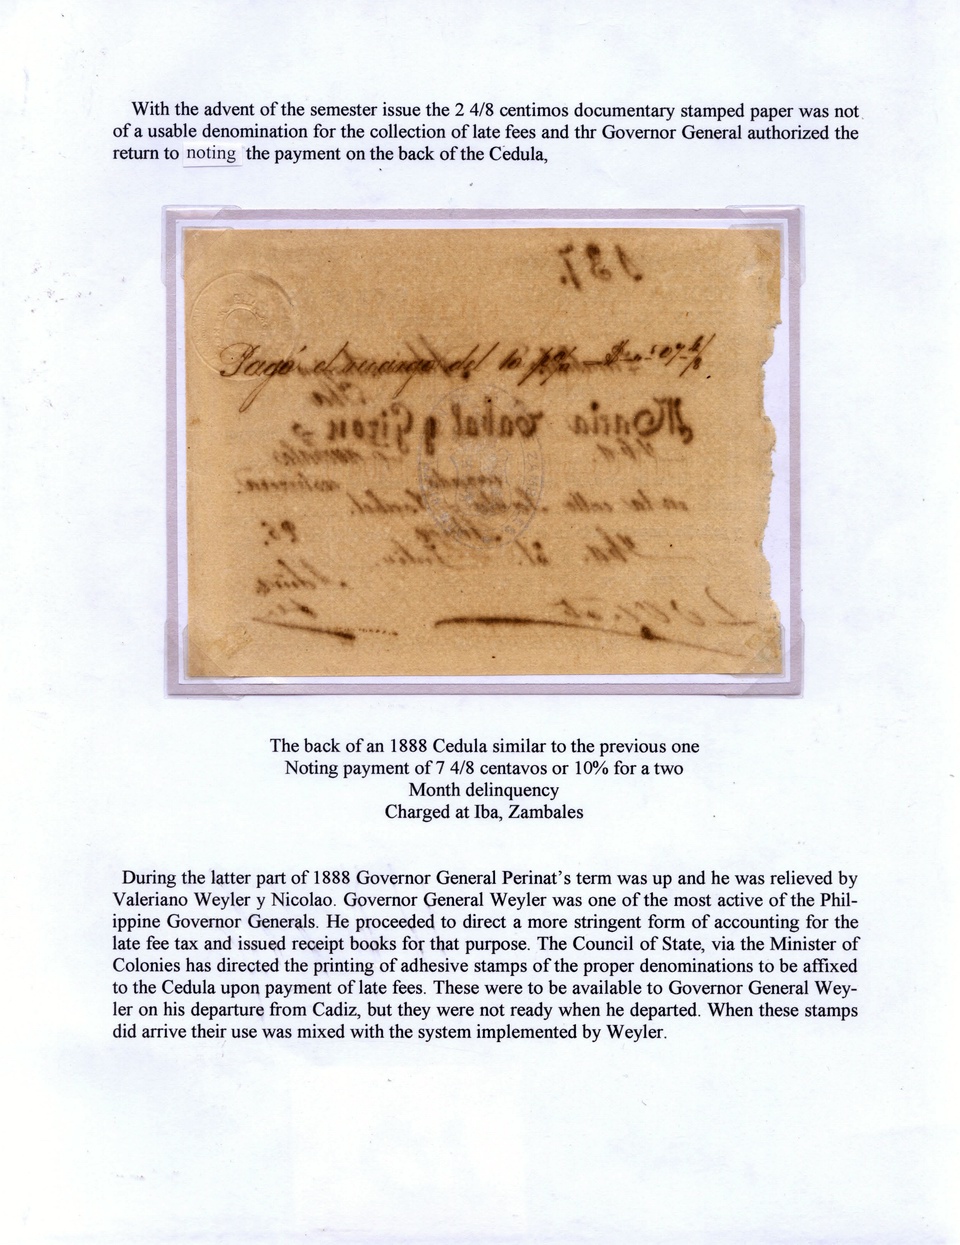 With the advent of the semester issue the 2 4/8 centimos documentary stamped paper was not
of a usable denomination for the collection of late fees and thr Governor General authorized the
return to noting the payment on the back of the Cedula,
137.
Pagó el recargo del 10 p% 
Maria Isabel y Giron
The back of an 1888 Cedula similar to the previous one
Noting payment of 7 4/8 centavos or 10% for a two
Month delinquency
Charged at Iba, Zambales
During the latter part of 1888 Governor General Perinat's term was up and he was relieved by
Valeriano Weyler y Nicolao. Governor General Weyler was one of the most active of the Phil-
ippine Governor Generals. He proceeded to direct a more stringent form of accounting for the
late fee tax and issued receipt books for that purpose. The Council of State, via the Minister of
Colonies has directed the printing of adhesive stamps of the proper denominations to be affixed
to the Cedula upon payment of late fees. These were to be available to Governor General Wey-
ler on his departure from Cadiz, but they were not ready when he departed. When these stamps
did arrive their use was mixed with the system implemented by Weyler.